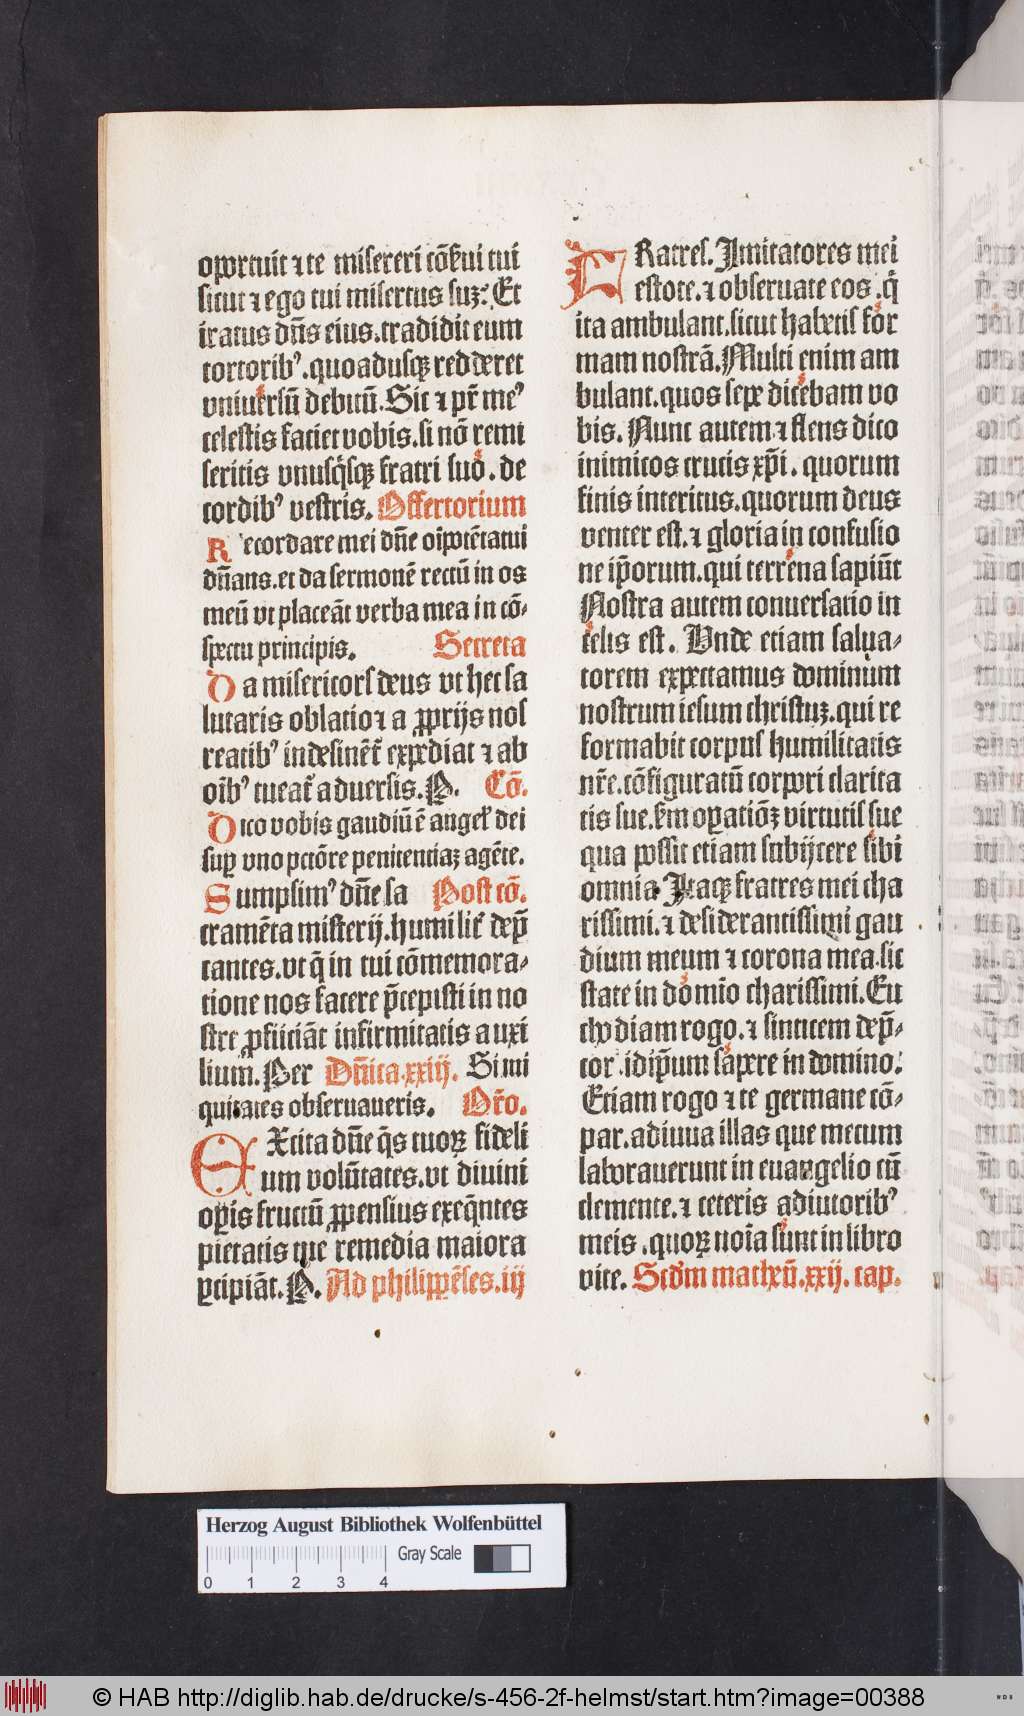 oportuit ⁊ te misereri cōẜui tui
sicut ⁊ ego tui misertus suꝫ: Et
iratus dn̄s eius.tradidit eum
tortorib⁹.quoadusqꝫ redderet
vniuersū debitū.Sic ⁊ pr̄ me⁹
celestis faciet vobis.si nō remi
seritis vnusq̇sqꝫ fratri suo.de
cordib⁹ vestris. Offertorium
Recordare mei dn̄e oīpotētatui
dn̄ans.et da sermonē rectū in os
meū vt placeāt verba mea in cō-
spectu principis. Secreta
Da misericors deus vt hec sa
lutaris oblatio ⁊ a ꝓprijs nos
reatib⁹ indesinēt̄ expediat ⁊ ab
oīb⁹ tueat̄ aduersis.P. Cō.
Dico vobis gaudiū ē angel' dei
suꝑ vno pctōre penitenciaꝫ agēte.
Sumpsim⁹ dn̄e sa Post cō.
cramēta misterij.humilit̄ dep̄
cantes.vt q̄ in tui cōmemora-
tione nos facere p̄cepisti in no
stre ꝓficiāt infirmitatis auxi
lium.Per Dn̄ica.xxiij. Si ini
quitates obseruaueris. Or̄o.
EXcita dn̄e q̄s tuoꝝ fideli
um volūtates.vt diuini
oꝑis fructū ꝓpensius exeq̄ntes
pietatis tue remedia maiora
ꝑcipiāt.P. Ad philippēses.iij
FRatres. Imitatores mei
estote.⁊ obseruate eos .q̇
ita ambulant.sicut habetis for
mam nostrā.Multi enim am
bulant.quos sepe dicebam vo
bis. Nunc autem ⁊ flens dico
inimicos crucis xp̄i. quorum
finis interitus.quorum deus
venter est.⁊ gloria in confusio
ne ip̄orum.qui terrena sapiūt
Nostra autem conuersatio in
celis est. Vnde etiam salua-
torem expectamus dominum
nostrum iesum christuꝫ.qui re
formabit corpus humilitatis
nr̄e.cōfiguratū corpori clarita
tis sue.scd'm oꝑatiōꝫ virtutis sue
qua possit etiam subijcere sibi
omnia. Itaqꝫ fratres mei cha
rissimi.⁊ desiderantissimi gau
dium meum ⁊ corona mea.sic
state in domīo charissimi.Eu
chodiam rogo.⁊ sinticem dep̄-
cor .idip̄um sapere in domino:
Etiam rogo ⁊ te germane cō-
par.adiuua illas que mecum
laborauerunt in euangelio cū
clemente.⁊ ceteris adiutorib⁹
meis .quoꝝ noīa sunt in libro
vite. Scd'm matheū.xxij. cap.
Herzog August Bibliothek Wolfenbüttel
Gray Scale
0 1 2 3 4
© HAB http://diglib.hab.de/drucke/s-456-2f-helmst/start.htm?image=00388